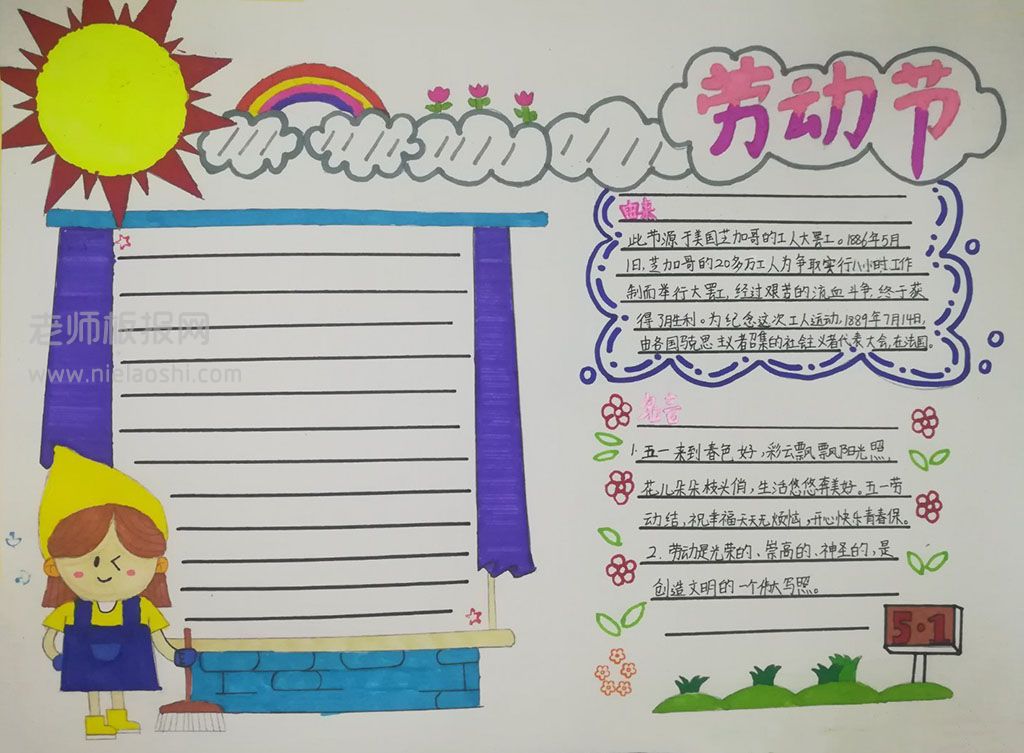 劳动节
由来
此节源于美国芝加哥的工人大罢工。1886年5月
1日,芝加哥的20多万工人为争取实行八小时工作
制而举行大罢工,经过艰苦的流血斗争,终于获
得了胜利。为纪念这次工人运动,1889年7月14日,
由各国马克思主义者召集的社会主义者代表大会,在法国。
老师板报网
www.nielaoshi.com
寄言
1.五一来到春色好,彩云飘飘阳光照,
花儿朵朵枝头俏,生活悠悠奔美好。五一劳
动结,祝幸福天天无烦恼,开心快乐青春保。
2.劳动是光荣的、崇高的、神圣的,是
创造文明的一个伟大写照。
5·1